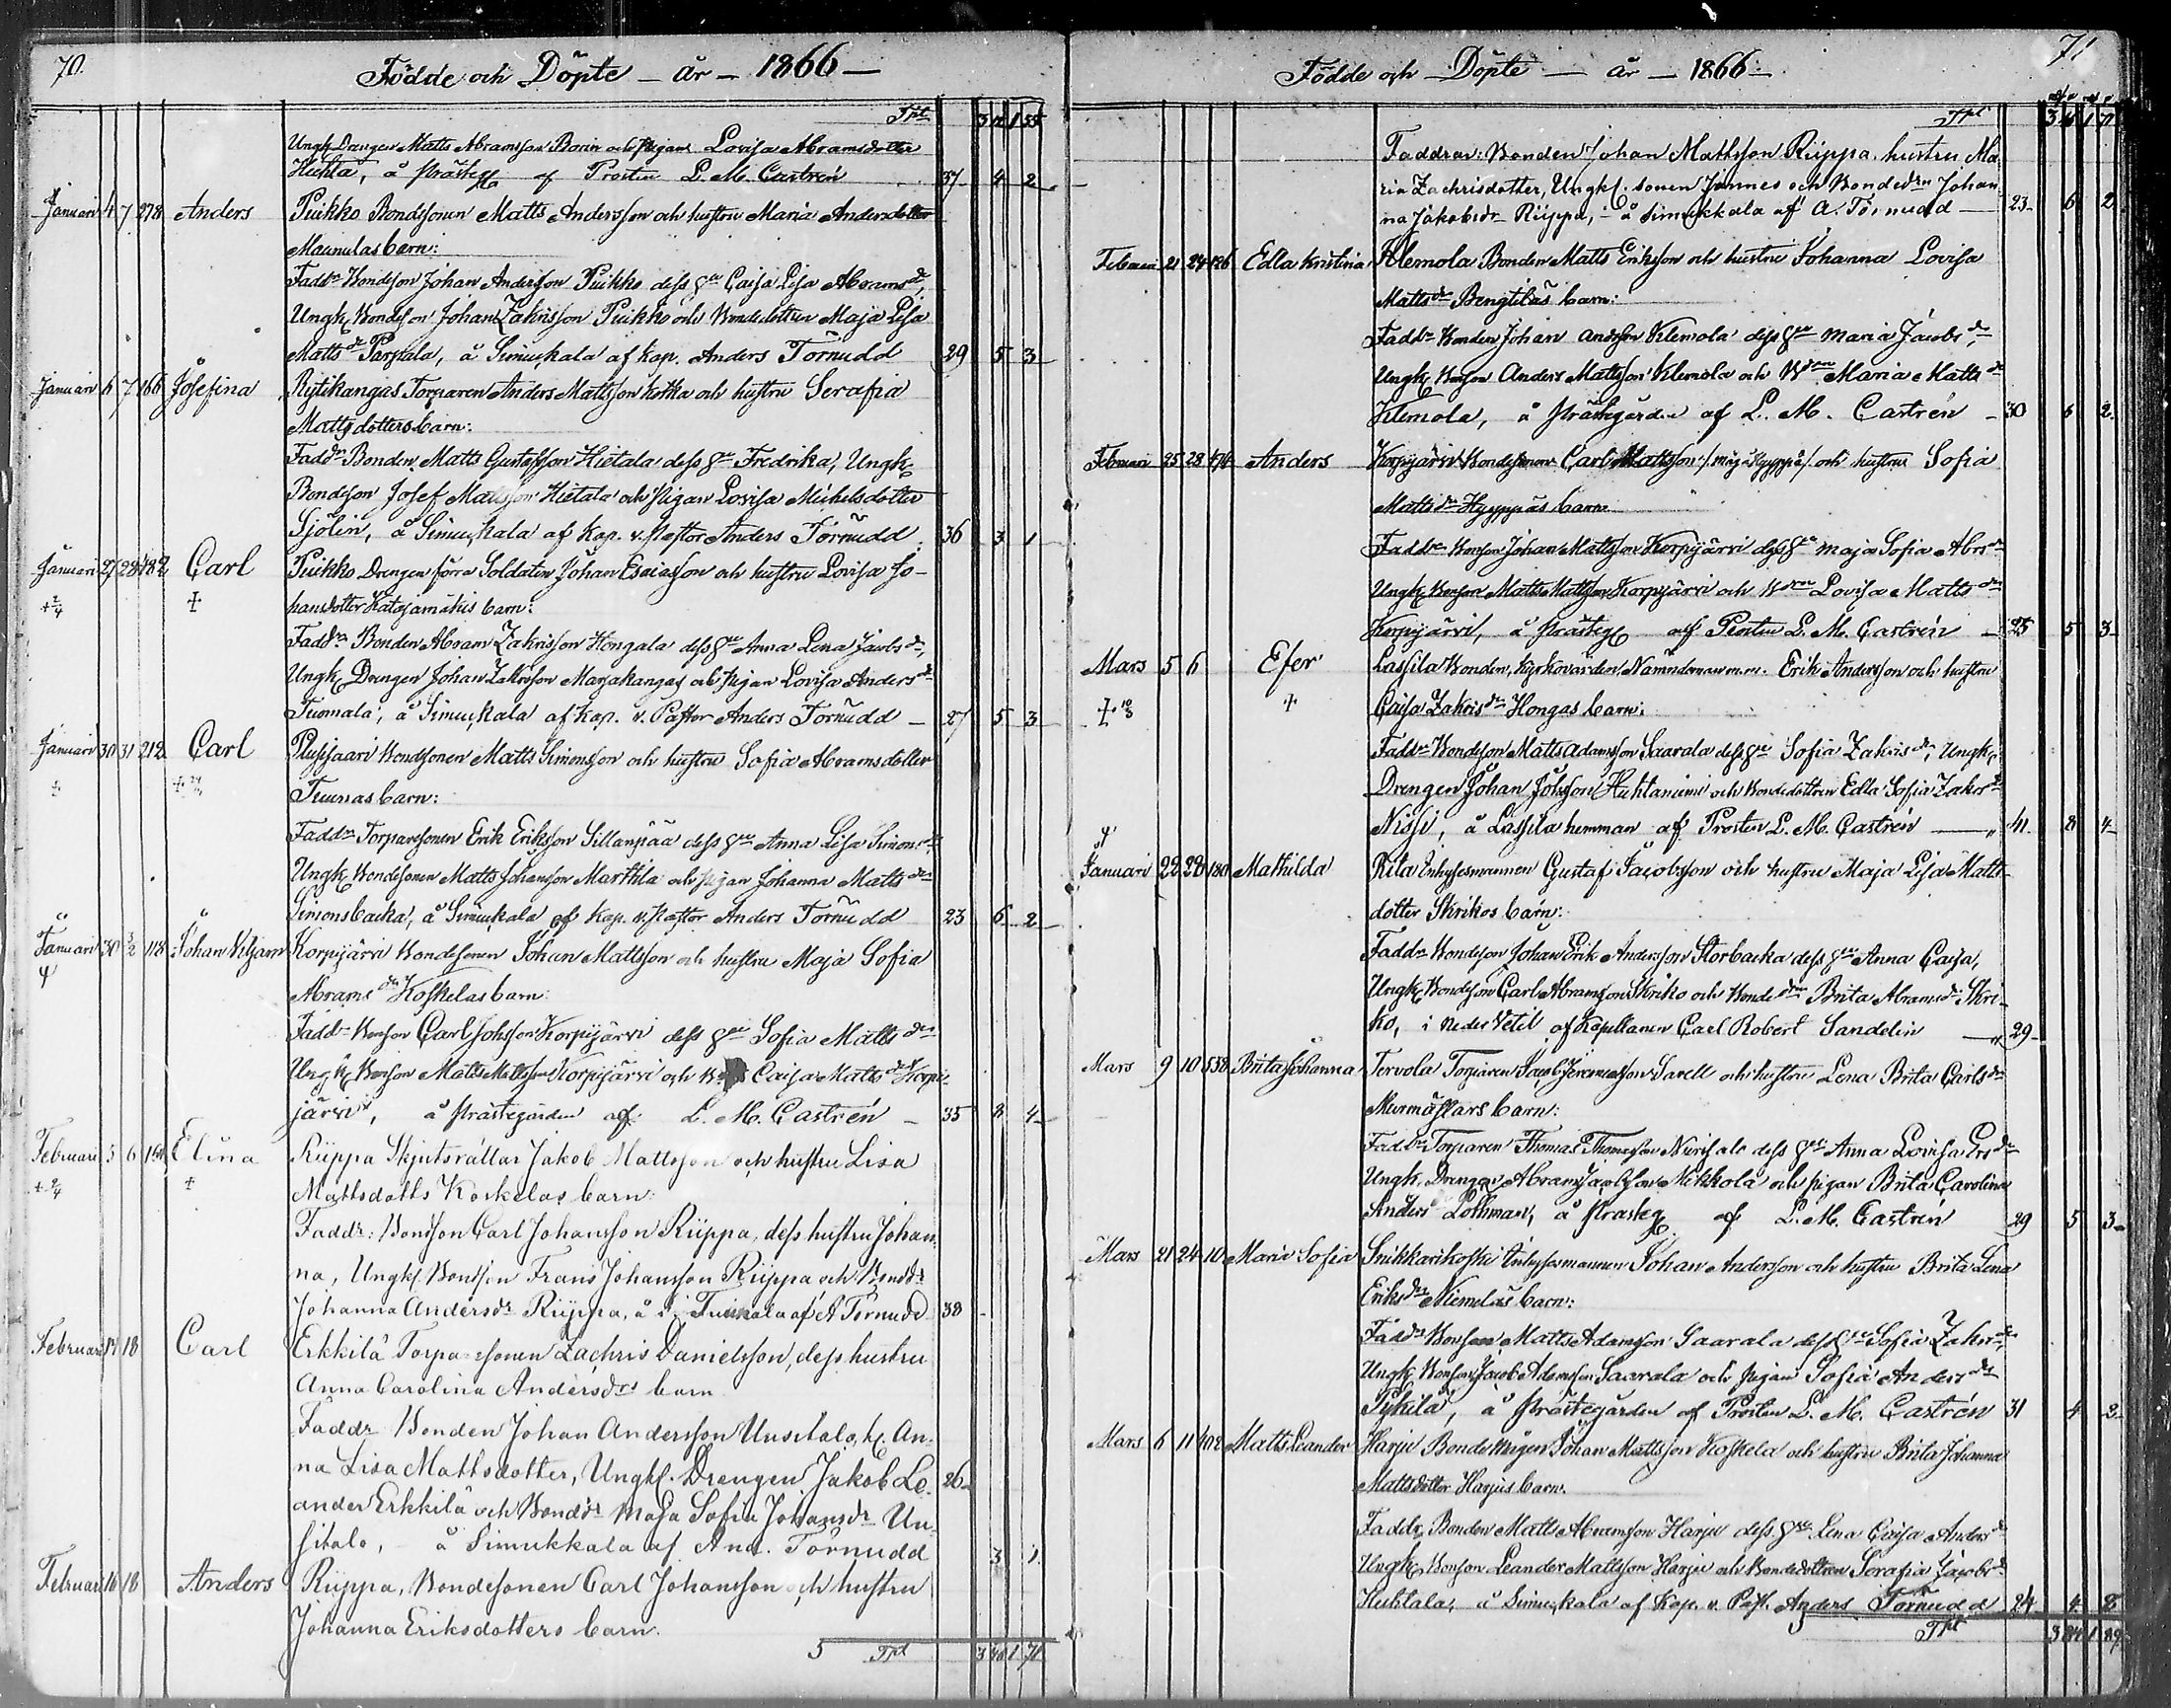 70.
Födde och Döpte - år - 1866 -
Tpt
Ungk Drengen Matts Abramsson och Pigan Lovisa Abramsdotter
Huhta, å Prästeg af Prosten L. M. Castrén 37 4 2
Januari 4 7 278 Anders Puikko Bondsonen Matts Andersson och hustru Maria Andersdotter
Maunulas barn:
Faddr Bondson Johan Andersson Puikko dess h Caisa Lisa Abramsdr,
Ungk Bondson Johan Zakrisson Puikko och Bondedottren Maja Lisa
Matts dr Parpala, å Simukkala af Kap. Anders Törnudd 29 5 3
Januari 6 7 166 Josefina Rytikangas Torparen Anders Mattsson Kotka och hustru Serafia
Mattsdotters barn:
Faddr Bonden Matts Gustafsson Hietala dess h Fredrika, Ungk
Bondson Josef Mattsson Hietala och Pigan Lovisa Michelsdotter
Sjölin, å Simukkala af Kap. v. Pastor Anders Törnudd 36 3 1
Januari 27 28 182 Carl Puikko Drengen förra Soldaten Johan Esaiasson och hustru Lovisa Jo-
hansdotter Katajamäkis barn:
Faddr Bonden Abram Zakrisson Hongala dess h Anna Lena Jacobsdr,
Ungk Drengen Johan Zakrisson Marjakangas och Pigan Lovisa Anders dr
Tuomala, å Simukkala af Kap. v. Pastor Anders Törnudd - 27 5 3
Januari 30 31 212 Carl Plusjaari Bondsonen Matts Simonsson och hustru Sofia Abramsdotter
Tuunas barn:
Faddr Torparesonen Erik Eriksson Sillanpää dess h Anna Lisa Simonsdr,
Ungk Bondesonen Matts Johansson Marttila och Pigan Johanna Matts dr
Simonsbacka, å Simukkala af Kap. v. Pastor Anders Törnudd 23 6 2
Januari 30 3/2 118 Johan Viljam Korpijärvi Bondsonen Johan Mattsson och hustru Maja Sofia
Abrams dr Koskelas barn:
Faddr Bonson Carl Johsson Korpijärvi dess h Sofia Matts dr
Ungk Bonson Matts Mattsson Korpijärvi och Caisa Matts dr Korpi-
järvi, å Prästegården af L. M. Castrén - 35 8 4
Februari 5 6 Elina Riippa Skjutsrättar Jakob Mattsson och hustru Lisa
Mattsdotts Koskelas barn:
Faddr: Bondson Carl Johansson Riippa, dess hustru Johan-
na, Ungk. Bondson Frans Johansson Riippa och Bonddr
Johanna Andersdr Riippa, å af A Törnudd 38
Februari 17 18 Carl Erkkilä Torparesonen Zachris Danielsson, dess hustru
Anna Carolina Andersdrs barn
Faddr Bonden Johan Andersson Uusitalo, h. An-
na Lisa Mattsdotter, Ungk. Drengen Jakob Le- 26
ander Erkkilä och Bonddr Maja Sofia Johansdr Uu-
sitalo, å Simukkala af And. Törnudd 3 1
Februari 16 18 Anders Riippa, Bondesonen Carl Johansson och hustru
Johanna Eriksdotters barn.
Tpt 3 40 1 71
71
Födde och Döpte - år - 1866 -
Tpt
Faddrar: Bonden Johan Mattsson Riippa, hustru Ma-
ria Zachrisdotter, Ungk. sonen Johannes och Bondedrn Johan-
na Jakobsdr Riippa, å Simukkala af A. Törnudd - 23 6 2
Februari 21 24 126 Edla Kristina Klemola Bonden Matts Eriksson och hustru Johanna Lovisa
Matts dr Bengtilas barn:
Faddr Bonden Johan Andersson Klemola dess h Maria Jacobs dr,
Ungk Bonson Anders Mattsson Klemola och Maria Matts dr
Klemola, å Prästegården af L. M. Castrén - 30 6 2
Februari 25 28 474 Anders Korpijärvi Bondesonen Carl Mattsson och hustru Sofia
Matts dr Hyyppäs barn
Faddr Bonson Johan Mattsson Korpijärvi dess h Maja Sofia Abrs dr
Ungk Bonson Matts Mattsson Korpijärvi och Lovisa Matts dr
Korpijärvi, å Prästeg af Prosten L. M. Castrén - 25 5 3
Mars 5 6 Efer Lassila Bonden, Kyrkovärden, Nämndeman m.m. Erik Andersson och hustru
Caisa Zakris dr Hongas barn:
Faddr Bondson Matts Adamsson Saarala dess h Sofia Zakris dr, Ungk
Drengen Johan Johsson Huhtaniemi och Bondedottren Edla Sofia Zakrs dr
Nissi, å Lassila hemman af Prosten L. M. Castrén - 41 8 4
Januari 22 28 180 Mathilda Rita Inhysesmannen Gustaf Jacobsson och hustru Maja Lisa Matts-
dotter Skrikos barn:
Faddr Bondson Johan Erik Andersson Storbacka dess h Anna Caisa,
Ungk Bondson Carl Abramsson Skriko och Bondedrn Brita Abramsdr Skri-
ko, i Neder Vetil af Kapellanen Carl Robert Sandelin - 29
Mars 9 10 538 Brita Johanna Tervola Torparen Jacob Jeremiasson Savell och hustru Lena Brita Carls dr
Murmästars barn:
Faddr Torparen Thomas Thomasson dess h Anna Lovisa Ers dr
Ungk. Drengen Abram Jacobsson Mikkola och Pigan Brita Carolina
Anders dr Löthman, å Prästeg af L. M. Castrén 29 5 3
Mars 21 24 10 Maria Sofia Snikkarikoski Inhysesmannen Johan Andersson och hustru Brita Lena
Eriks dr Niemeläs barn:
Faddr Bonson Matts Adamsson Saarala dess h Sofia Zakrs dr,
Ungk Bonson Jacob Adamsson Saarala och Pigan Sofia Anders dr
Pykilä, å Prästegården af Prosten L. M. Castrén 31 4 2
Mars 6 11 402 Matts Leander Harju Bonde Mågen Johan Mattsson Koskela och hustru Brita Johanna
Mattsdotter Harjus barn.
Faddr Bonden Matts Abramsson Harju dess h Lena Caisa Anders dr
Ungk Bonson Leander Mattsson Harju och Bondedottren Serafia Jacobs dr
Huhtala, å Simukkala af Kap. v. Past. Anders Törnudd 24 4 8
Tpt 3 84 1 89